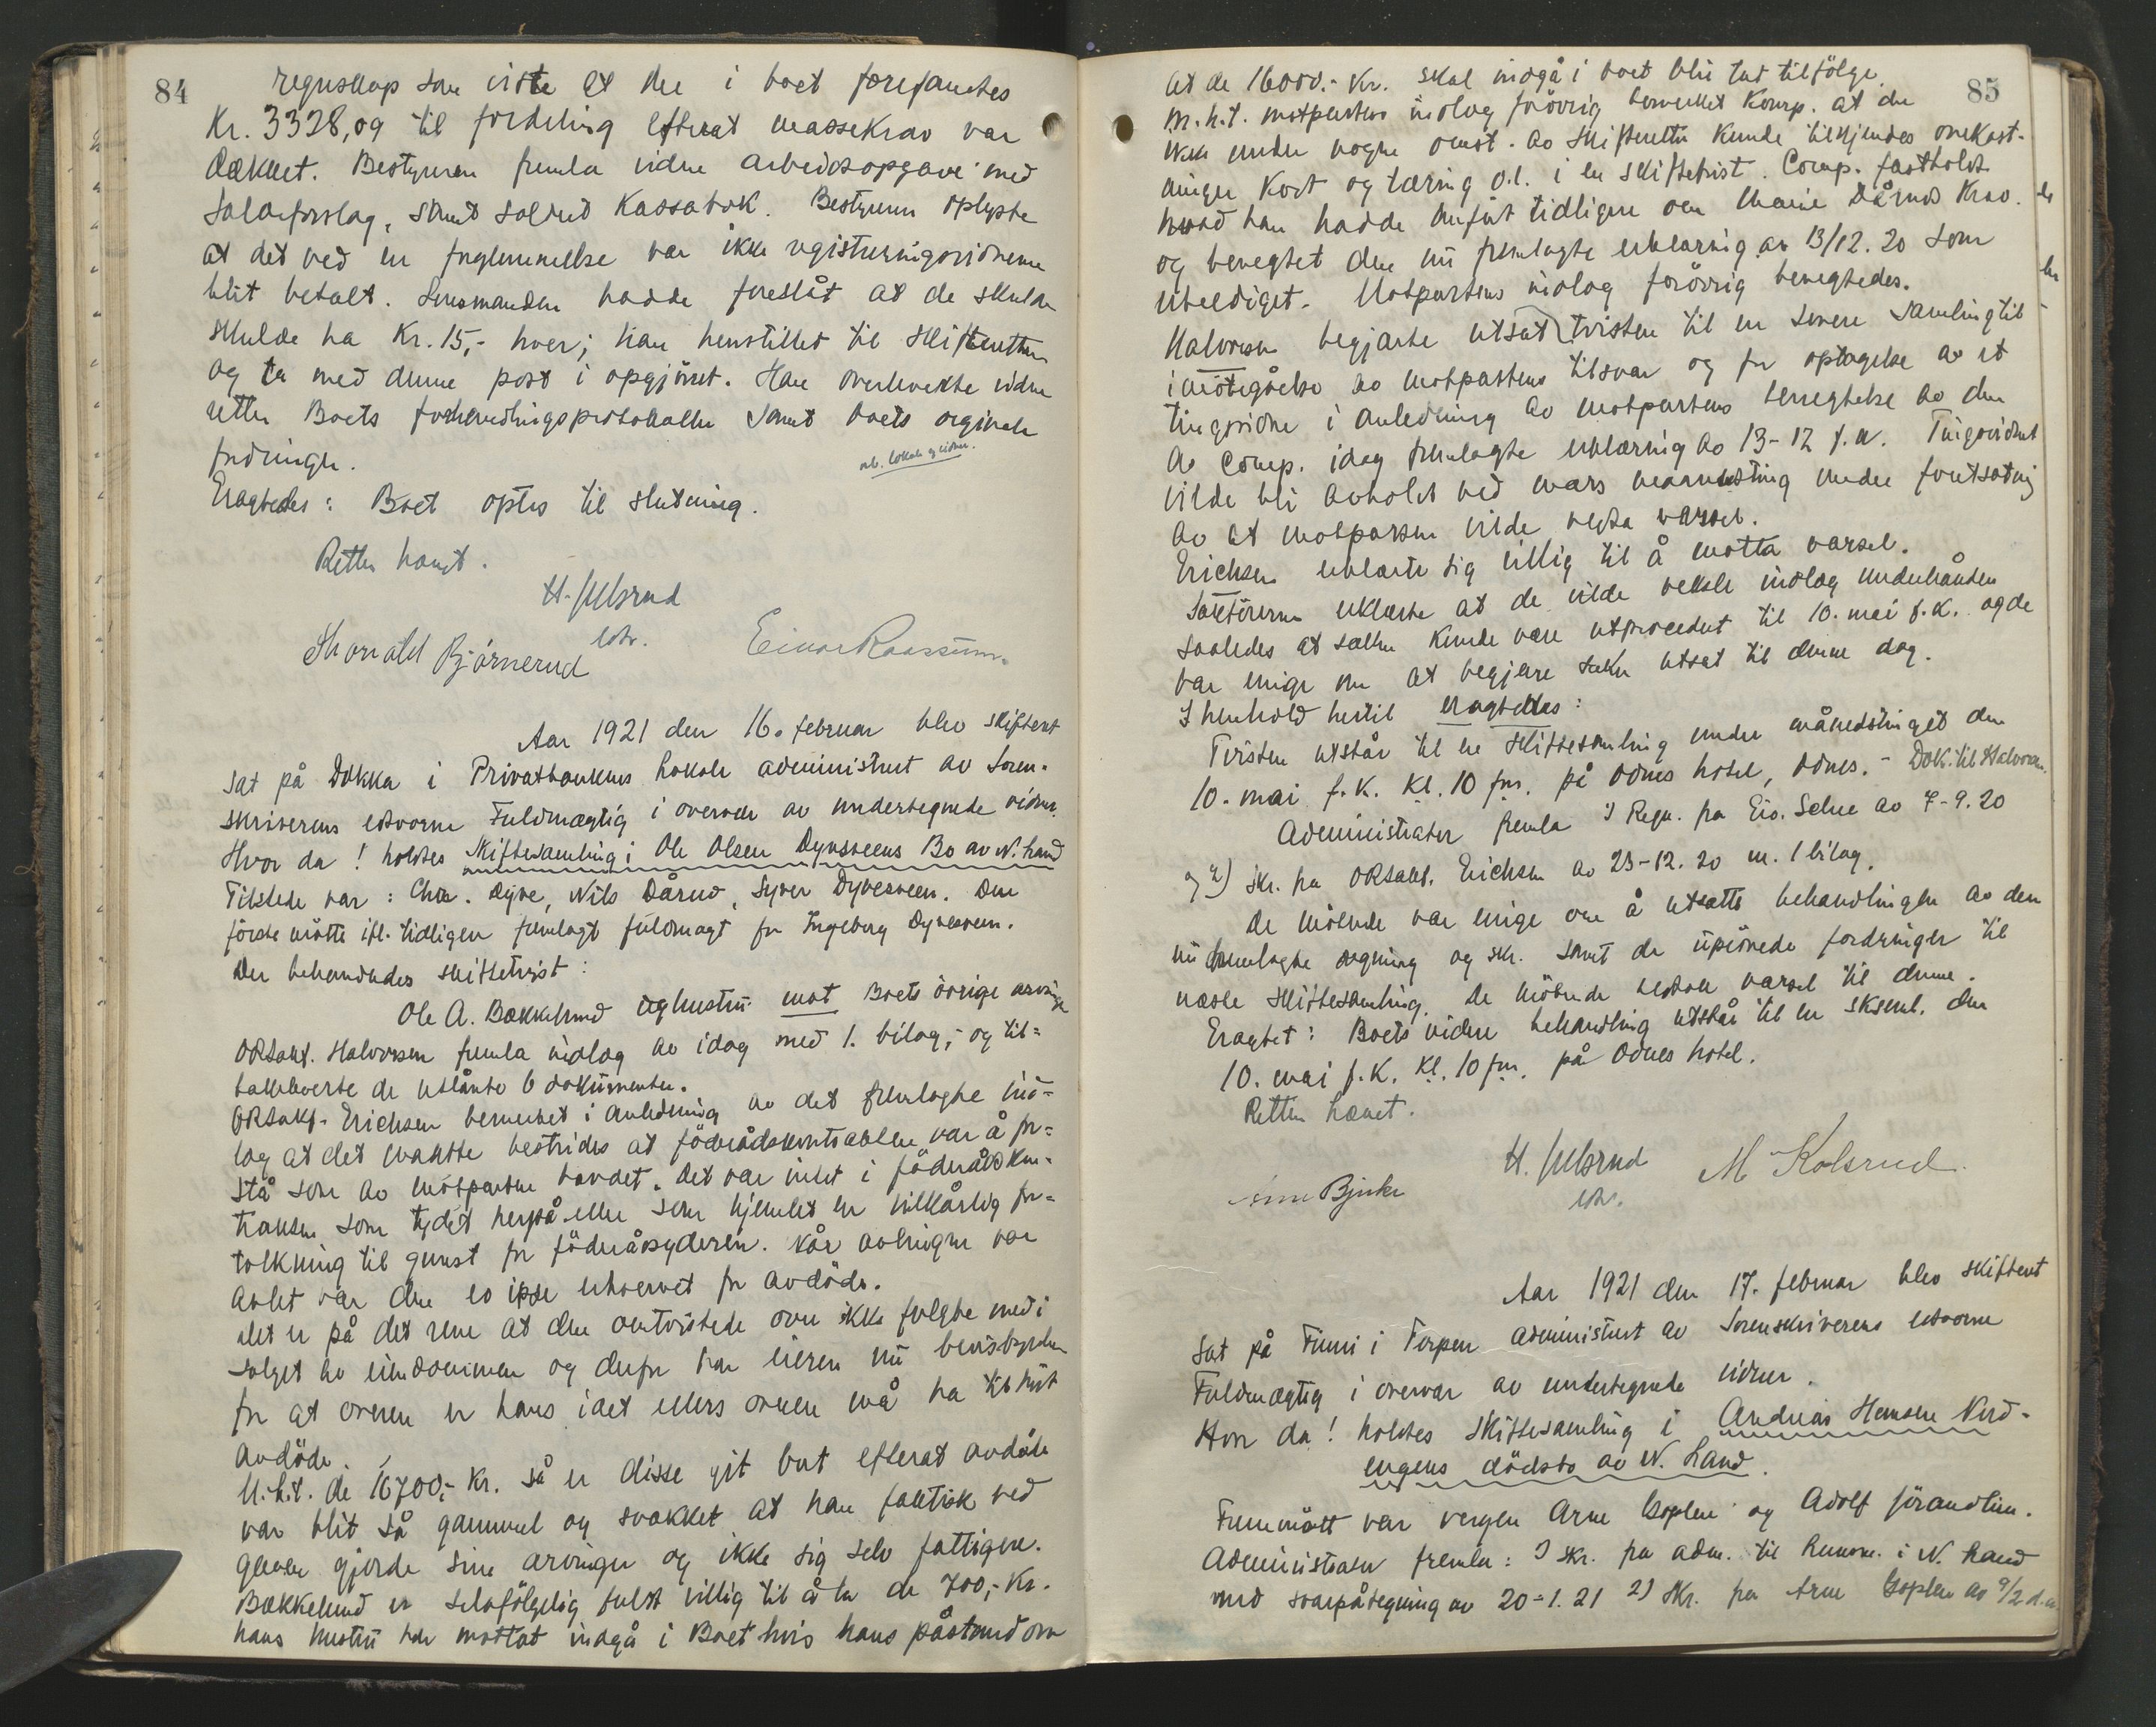 84
regnskap som viste at der i boet forefantes
Kr. 3328,09 til fordeling efterat massekrav var
dækket. Bestyreren fremla videre arbeidsopgave med
salærforslag, samt saldert Kassabok. Bestyreren oplyste
at det ved en forglemmelse var ikke registreringsvidnene
blit betalt. Lensmanden hadde foreslåt at de skulde
skulde ha Kr. 15,- hver; han henstillet til skifteretten
og ta med denne post i opgjöret. Han overleverte videre
retten Boets forhandlingsprotokoller samt boets orginale
fordringer.
utl. lokale og vidner.
Eragtedes: Boet optas til slutning.
Retten hævet.
H. Ulsrud
edsv.
Thorvald Björnerud
Einar Raassum
Aar 1921 den 16. februar blev skifteret
sat på Dokka i Privatbankens Lokale administrert av Soren-
skriverens edsvorne Fuldmægtig i overvær av undertegnede vidner.
Hvor da! holdtes Skiftesamling i Ole Olsen Dyvesveens Bo av N. Land
Tilstede var: Chr. Dyve, Nils Dårud, Syver Dyvesveen. Den
förste mötte ifl. tidligere fremlagt fuldmagt for Ingeborg Dyvesveen.
Der behandledes skiftetvist:
Ole A. Bækkelund og hustru mot Boets övrige arvinger
ORSakf. Halvorsen fremla indlæg av idag med 1. bilag, - og til-
bakeleverte de utlånte 6 dokumenter.
ORSakf. Erichsen bemerket i anledning av det fremlagte ind-
læg at det maatte bestrides at föderådskontrakten var å for-
stå som av motparten hævdet. Det var intet i föderådskon-
trakten som tydet herpå eller som hjemlet en vilkårlig for-
tolkning til gunst for föderådsyderen. Når avlingen var
avlet var den eo ipso erhvervet for avdöde.
Det er på det rene at den omtvistede ovn ikke fulgte med i
salget av eiendommen og derfor har eieren nu bevisbyrden
for at ovnen er hans idet ellers ovnen må ha tilhört
avdöde.
M.h.t. de 16700,- Kr. så er disse git bort efterat avdöde
var blit så gammel og svækket at han faktisk ved
gaven gjorde sine arvinger og ikke sig selv fattigere.
Bækkelund er selvfölgelig fuldt villig til å la de 700,- Kr.
hans hustru har mottat indgå i Boet hvis hans påstand om
85
at de 16000.- Kr. skal indgå i boet blir tat tilfölge.
M.h.t. motpartens indlæg forövrig bemerket Komp. at der
ikke under nogen omst. av Skifteretten kunde tilkjendes omkost-
ninger Kost og tæring o.l. i en skiftetvist. Comp. fastholdt
hvad han hadde anfört tidligere om Marie Dåruds Krav.
og benegtet den nu fremlagte erklæring av 13/12. 20 som
ubeediget. Motpartens indlæg forövrig benegtedes.
Halvorsen begjærte utsat tvisten til en senere samling til
imötegåelse av motpartens tilsvar og for optagelse av et
tingsvidne i anledning av motpartens benegtelse av den
av Comp. idag fremlagte erklæring av 13-12 f.a. Tingsvidnet
vilde bli avholdt ved mars maanedsting under forutsætning
av at motparten vilde vedta varsel.
Erichsen erklærte sig villig til å motta varsel.
Sakförerne erklærte at de vilde veksle indlæg underhånden
saaledes at sakken kunde være utprocedert til 10. mai f.k. og de
var enige om at begjære saken utsat til denne dag.
I henhold hertil eragtedes:
Tvisten utstår til en Skiftesamling under månedstinget den
10. mai f.k. Kl. 10 fm. på Odnes hotel, Odnes. - Dok. til Halvorsen.
Administrator fremla 1) Regn. fra Eiv. Selne av 7-9. 20
og 2) Skr. fra ORSakf. Erichsen av 23-12. 20 m. 1 bilag.
De mötende var enige om å utsætte behandlingen av den
nu fremlagte regning og skr. samt de uprövede fordringer til
næste skiftesamling. De mötende vedtok varsel til denne.
Eragtet: Boets videre behandling utstår til en sksaml. den
10. mai f.k. Kl. 10 fm. på Odnes hotel.
Retten hævet.
H. Ulsrud
edsv.
M Kolsrud
Bjerke
Aar 1921 den 17. februar blev skifteret
sat på Finni i Torpen administrert av Sorenskriverens edsvorne
Fuldmægtig i overvær av undertegnede vidner.
Hvor da! holdtes Skiftesamling i Andreas Hansen Nord-
engens dödsbo av N. Land.
Fremmött var vergen Arne Goplen og Adolf Jörandlien.
Administrator fremla: 1) skr. fra adm. til lensm. i N. Land
med svarpåtegning av 20-1. 21 2) Skr. fra Arne Goplen av 9/2 d.a.